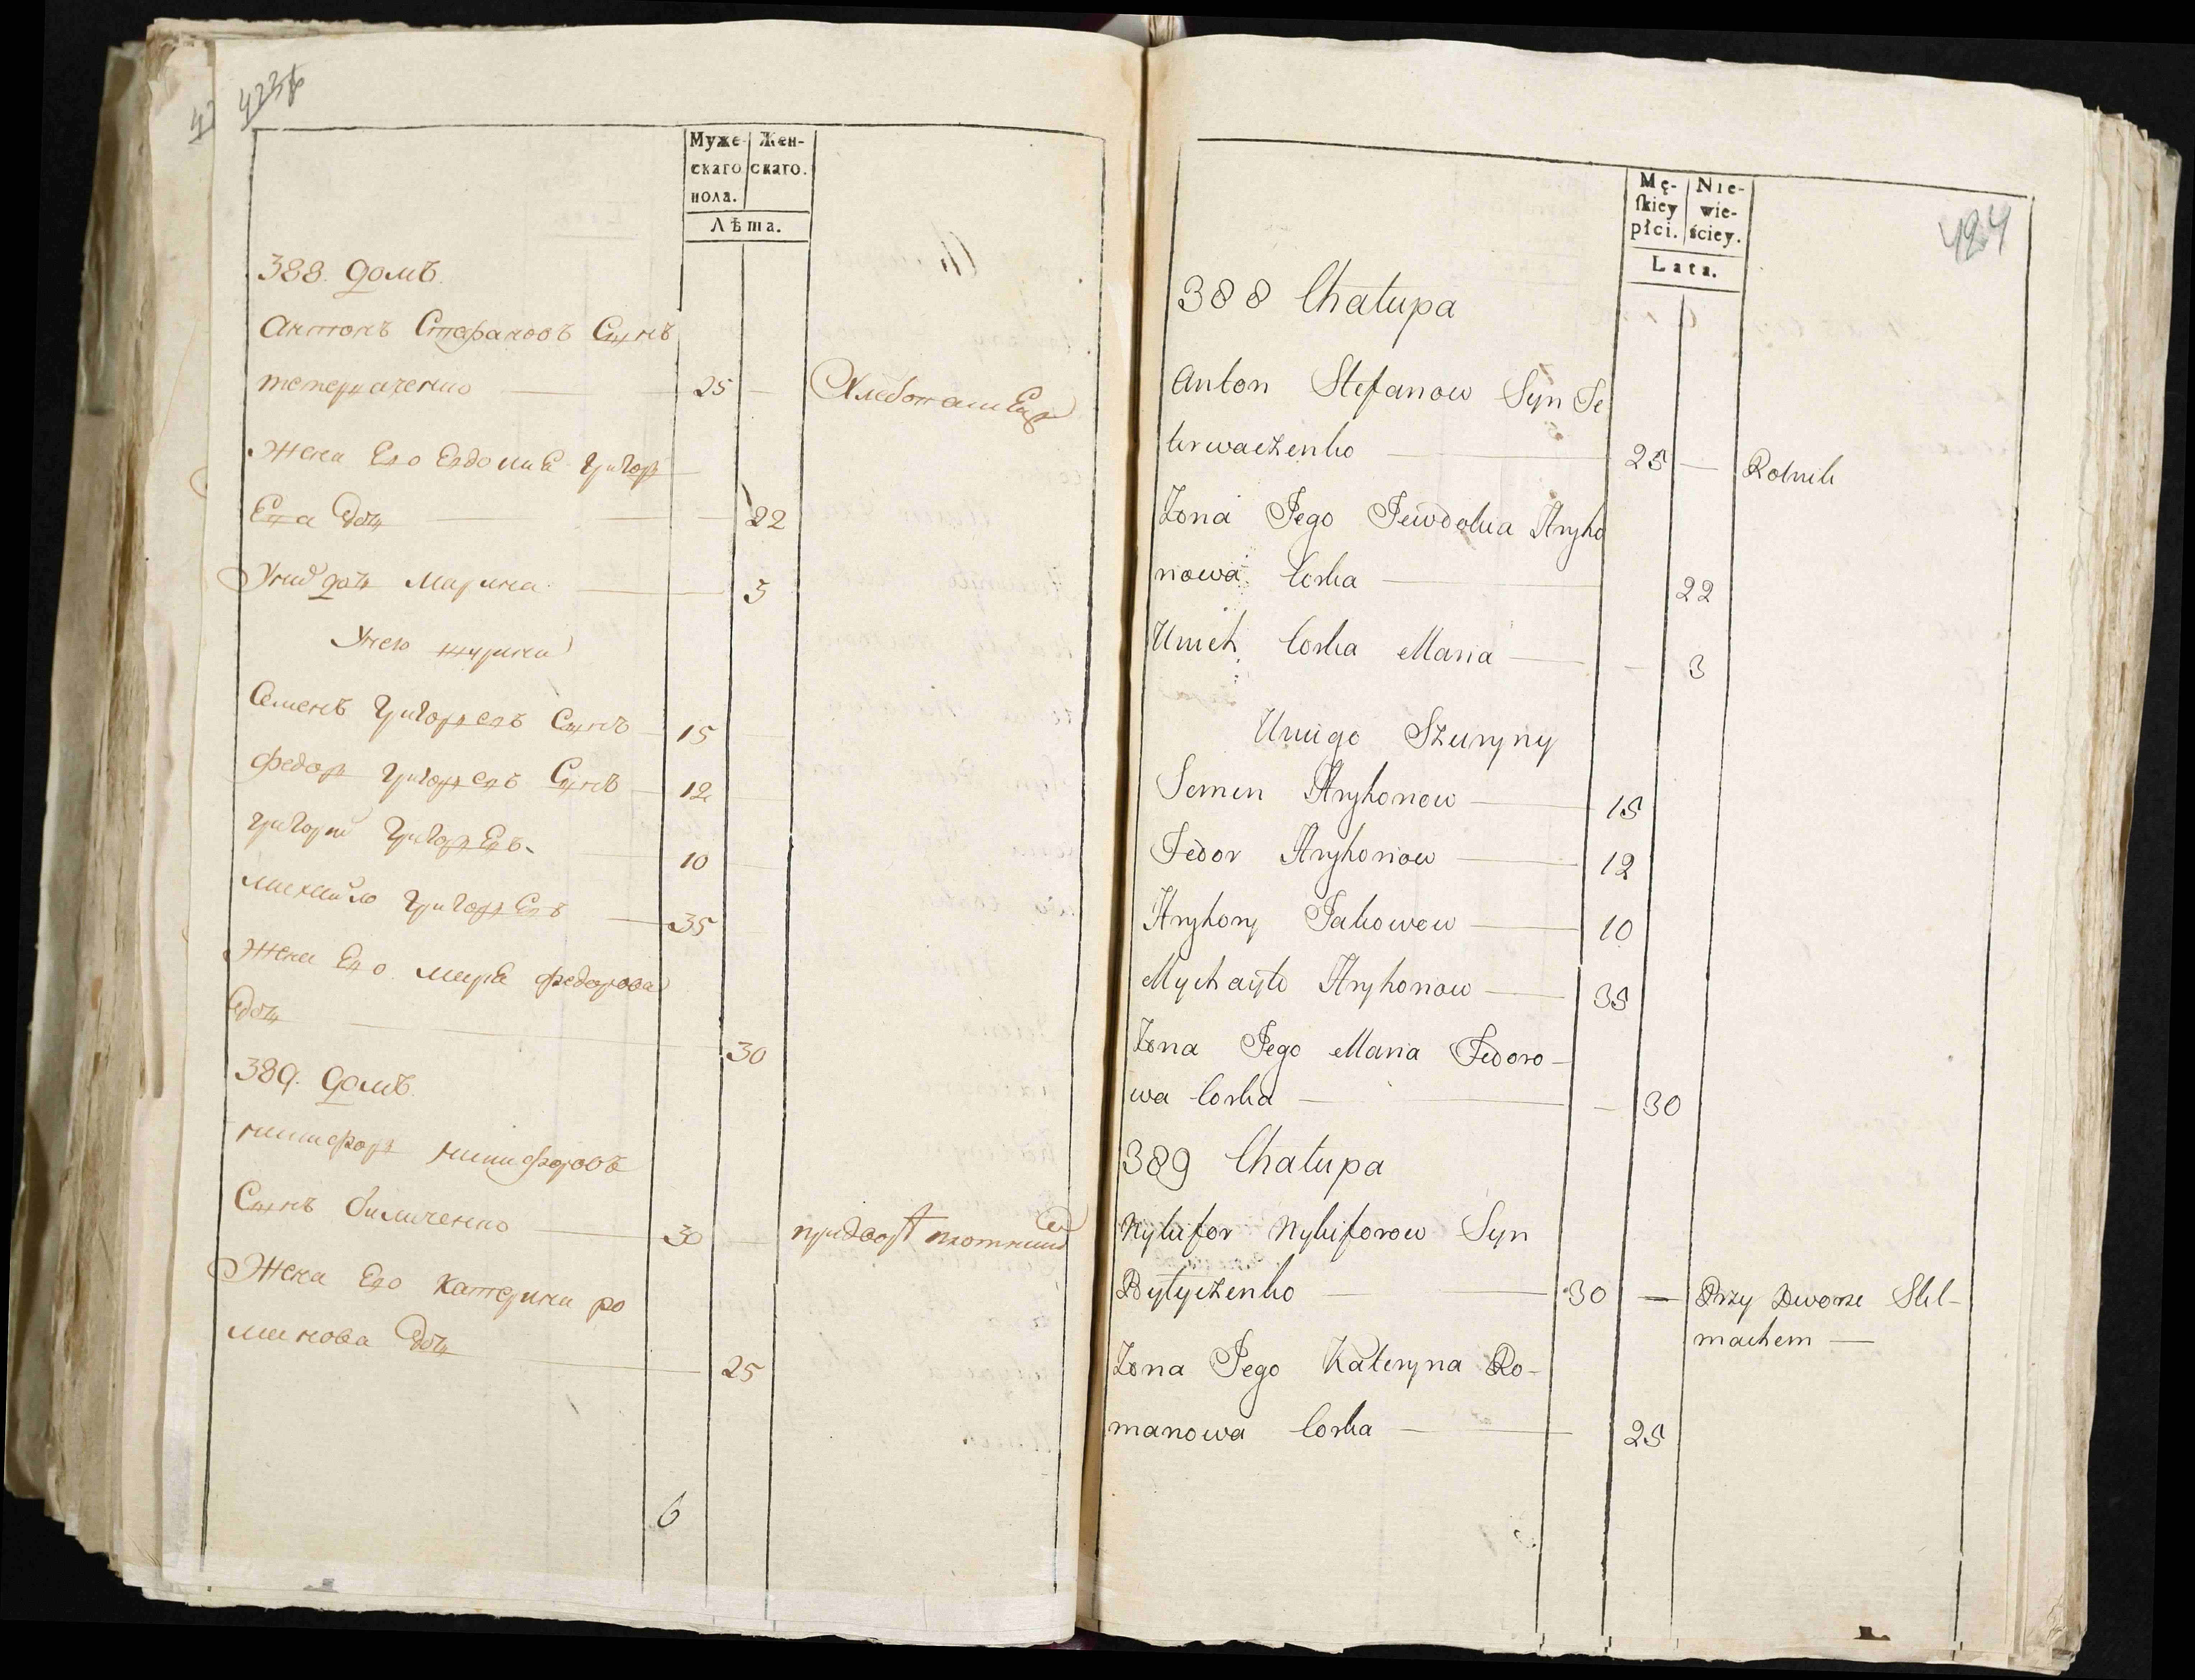 423
Муже-
скаго
пола.
Жен-
скаго.
Лѣта.
388. домъ.
Антонъ Стефановъ Сынъ
тетерваченко 25 — Хлебопашец
Жена Его Евдокия Григор
Ева дочь 22
У них дочь Марина 3
У нево шурини
Семенъ Григорьевъ Сынъ 15
Федор Григорьевъ Сынъ 12
Григорий Григорьевъ 10
михайло Григорьевъ 35
Жена Его Мария Федорова
дочь 30
389. домъ.
никифоръ никифоровъ
Сынъ биличенко 30 —
Жена Его Катерина ро
манова дочь 25
6
424
Mę-
skiey
płci.
Nie-
wie-
ściey.
Lata.
388 Chałupa
Anton Stefanow Syn Te
terwaczenko 25 — Rolnik
Żona Jego Jewdokia Hryho
riowa Corka 22
U nich Corka Maria — 3
U niego Szuryny
Semen Hryhoriow 15
Fedor Hryhoriow 12
Hryhory Jakowow 10
Mychayło Hryhoriow 35
Żona Jego Maria Fedoro-
wa Corka — 30
389 Chałupa
Nykifor Nykiforow Syn
Byłyczenko 30 — Przy Dworze Stel-
machem —
Żona Jego Kateryna Ro-
manowa Corka 25